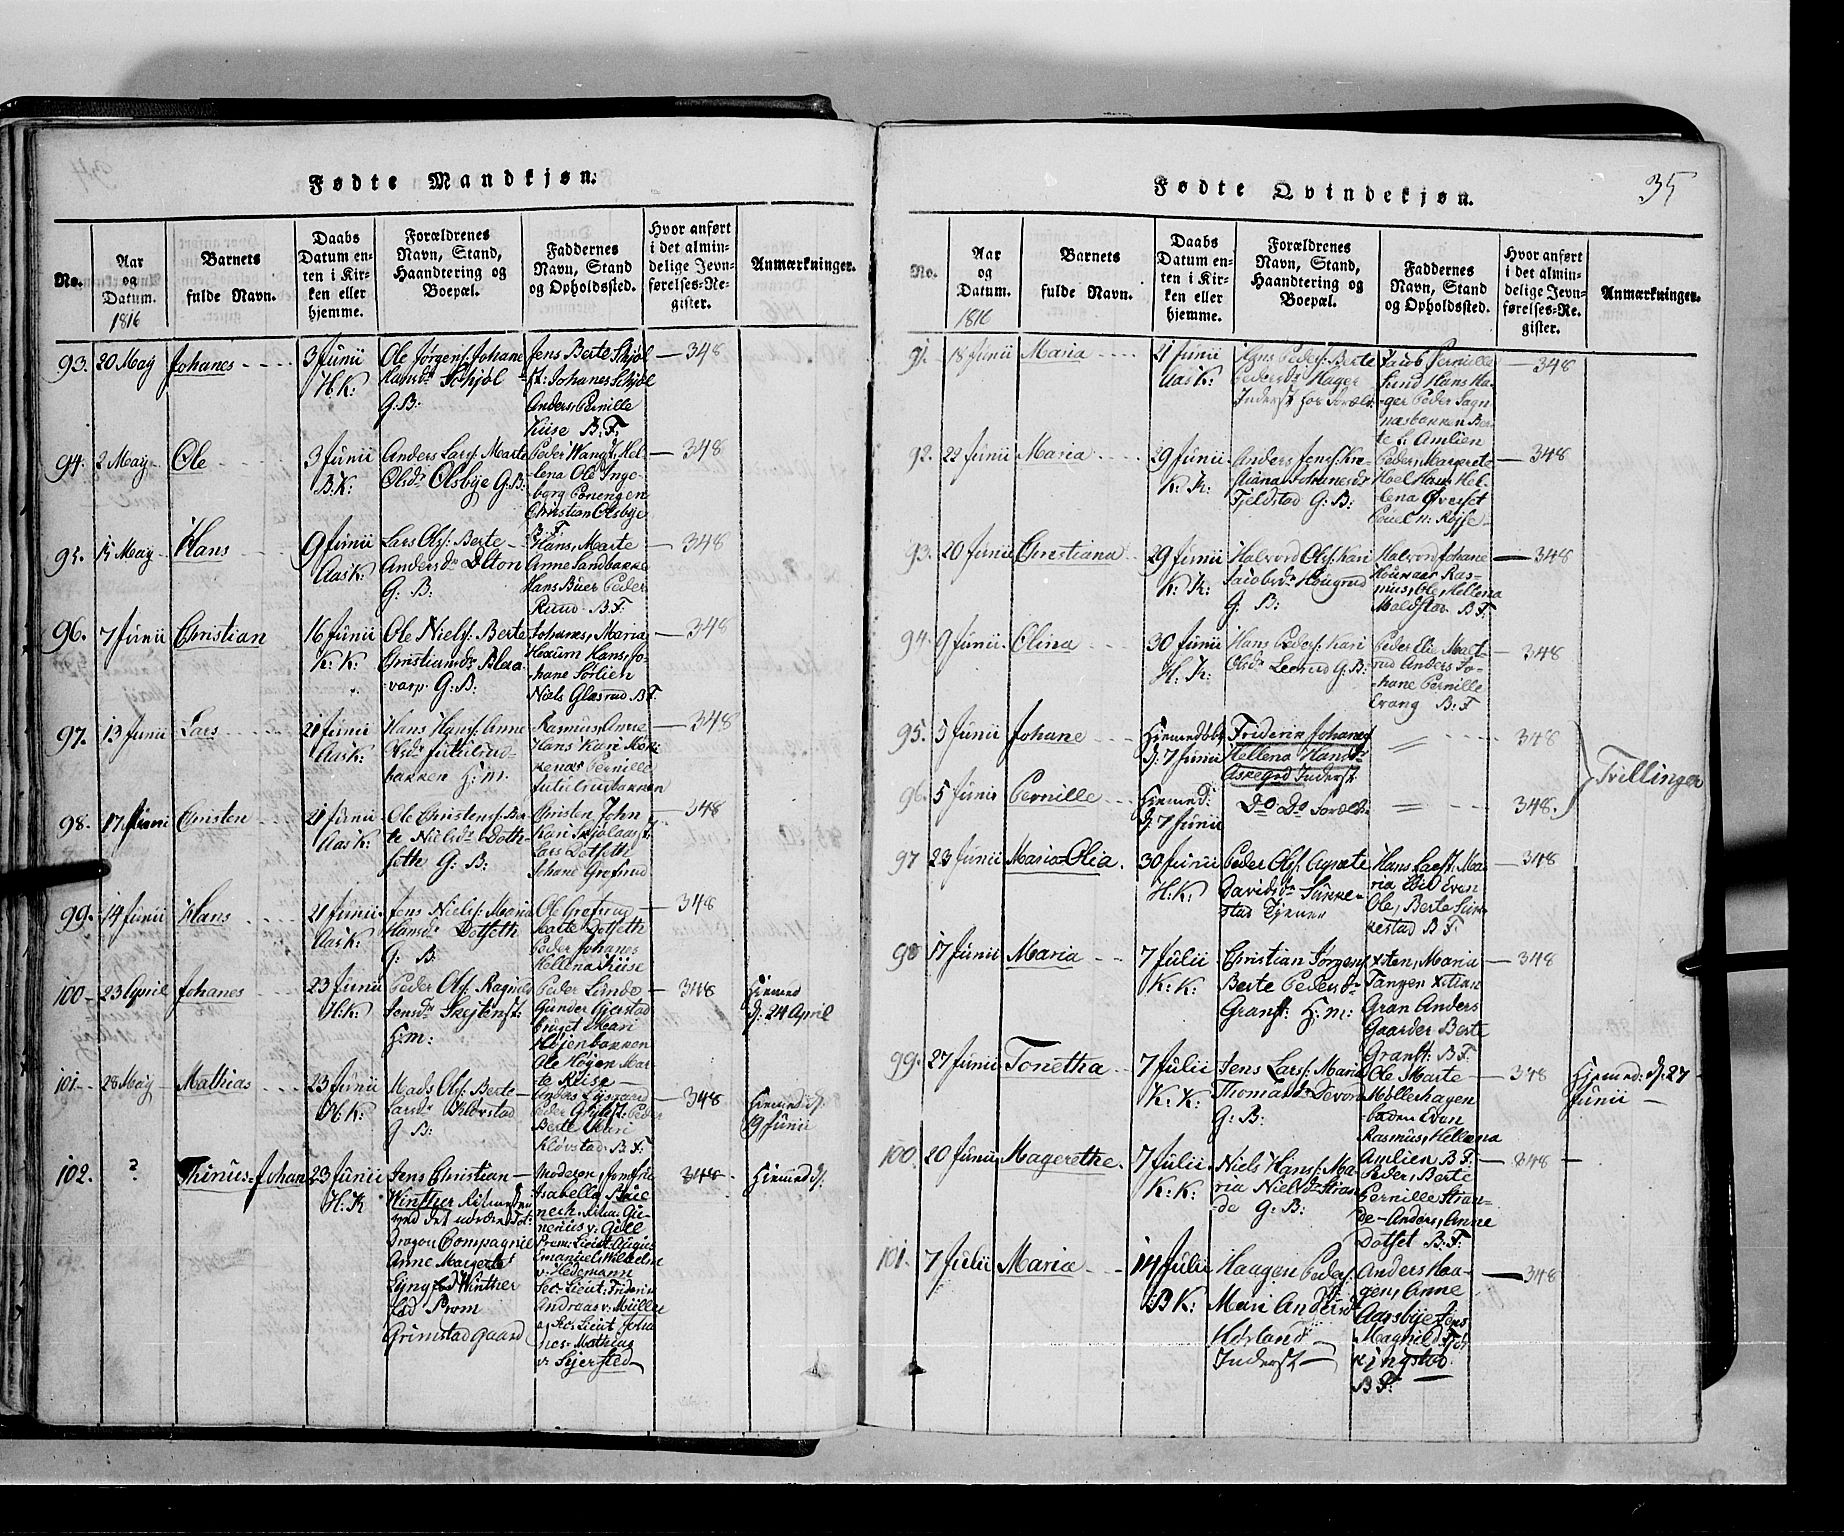 Fødte Mandkjøn.
No.
Aar
og
Datum.
1816
Barnets
fulde Navn.
Daabs
Datum en-
ten i Kir-
ken eller
hjemme.
Forældrenes
Navn, Stand,
Haandtering og
Boepæl.
Faddernes
Navn, Stand
og Opholdssted.
Hvor anført
i det almin-
delige Jevn-
førelses-Re-
gister.
Anmærkninger.
93. 20 May Johanes
3 Junii
H. K:
Ole Jørgens: Johane
Hansdr Schjøl
G: B:
Jens Berte Schjøl
Johanes Schjøl
Anders, Pernille
Kiise B. F.
348
94. 2 May Ole
3 Junii
B. K:
Anders Lars: Marte
Olsdr Olsbye G. B.
Peder Wang, Hel-
lena Ole Inge-
borg Poningen
Christian Olsbye
B. F.
348
95. 15 May Hans
9 Junii
Aas K:
Lars Ols: Berte
Andersdr Dlton
G. B:
Hans, Marte
Anne Sandbakke
Hans Buer Peder
Ruud B. F.
348
96. 7 Junii Christian
16 Junii
K. K:
Ole Niels: Berte
Christiansdr Blaa-
varp G: B:
Johanes, Maria
Hexum Hans, Jo-
hane Sørlien
Niels Glæsrud B. F.
348
97. 13 Junii Lars
21 Junii
Aas K:
Hans Hans: Anne
Olsdr Juliilrud-
bakken H: m.
Rasmus, Anne
Hans Kari
Pernille
Juliilrudbakken
348
98. 17 Junii Christen
21 Junii
Aas K:
Ole Christens: Ber-
te Nielsdr Doth-
seth G: B:
Christen John
Kari
Lars Dotseth
Johane Grefsrud
348
99. 14 Junii Hans
21 Junii
Aas K:
Jens Niels: Maria
Hansdr Dotseth
G: B
Ole Grefsrug
Marte Dotseth
Peder Johanes
Hellena Kiise
348
100 23 April Johanes
23 Junii
H. K:
Peder Ols: Ragned
Jensdr Skejtenst:
H: m:
Peder Lunde
Gunder Gjerstad
Mari
Højenbakken
Ole Højen Mar-
te Kiise
348
Hiemmed
d: 24 April
101 28 May Mathias
23 Junii
H. K:
Mads Ols: Berte
Larsdr Kløvstad
G B:
Anders Lysgaard
Peder
Berte Mari
Kløvstad B. F:
348
Hiemmed d:
9 Junii
102. ? Thinus-Johan
23 Junii
H: K
Jens Christian
Winther
ved det
Dragon Compagnie
Anne Margrete
Lyng fød Winther
fød Prom
Grimstad gaard
Isabella
Gu-
nerius v: Güll
Prem: Lieut: August
Emanuel Wilhelm
v: Hedemann
Sec: Lieut: Friderik
Andreas v: Müller
og Sec: Lieut Joha
nes Mathias
v: Sejersted
348
Hiemmed d:
35
Fødte Qvindekjøn.
No.
Aar
og
Datum.
1816
Barnets
fulde Navn.
Daabs
Datum en-
ten i Kir-
ken eller
hjemme.
Forældrenes
Navn, Stand,
Haandtering og
Boepæl.
Faddernes
Navn, Stand
og Opholdssted.
Hvor anført
i det almin-
delige Jevn-
førelses-Re-
gister.
Anmærkninger.
91. 18 Junii Maria
21 Junii
Aas K:
Hans Peders: Berte
Pedersdr Hager
Inderst
Jacob Pernille
Lund Hans Ha-
ger Peder Sagn
Ber-
te Amlien
348
92. 22 Junii Maria
29 Junii
K. K:
Anders Jens: Kre-
stiana Johanesdr
Fjeldstad G: B:
Peder, Margrete
Hoel Hans Hel-
lena Øverset
Røise
348
93. 20 Junii Christiana
29 Junii
K. K:
Halvord Ols: Kari
Jacobsdr Hougrud
G B:
Halvord Johane
Ras-
mus, Ole, Hellena
B. F.
348
94. 9 Junii Olina
30 Junii
H. K:
Hans Peders: Kari
Olsdr Leerud G. B:
Peder
Anders Jo-
hane Pernille
Evang B. F
348
95. 5 Junii Johane
Hiemmedøbt
d: 7 Junii
Friderik Johanes
Hellena Hansdr
Askegrd Inderst
348
96. 5 Junii Pernille
Hiemmed:
d: 7 Junii
Do Do Foræld:
348.
Trillinger
97 23 Junii Maria-Olia.
30 Junii
H: K:
Peder Ols: Agnete
Davidsdr Sukke-
stad Tjener
Hans Ma-
ria Even
Ole, Berte Suk-
kestad B. F.
348
98 17 Junii Maria
7 Julii
K. K:
Christian Jørgens
Berte Pedersdr
Granst: H: m:
xsten, Maria
Tangen xstian
Gran Anders
Gaarder Berte
Granst: B. F.
348
99. 27 Junii Tonetha
7 Julii
K: K:
Jens Lars: Maria
Thomasdr Devon
G: B:
Ole Marte
Møllerhagen
Even
Rasmus, Hellena
Amlien B F.
348
Hiemmed: d: 27
Junii
100. 20 Junii Magerethe.
7 Julii
K: K:
Niels Hans: Ma-
ria Nielsdr Stran
de G: B:
Peder, Berte
Pernille Stran-
de Anders, Anne
Dotset B. F:
348
101. 7 Julii Maria
14 Julii
B K:
Haagen Peders:
Mari Andersdr
Hørland
Inderst
Anders Haa-
gen, Anne
Aarsbye Jens
Magnild
B F.
348